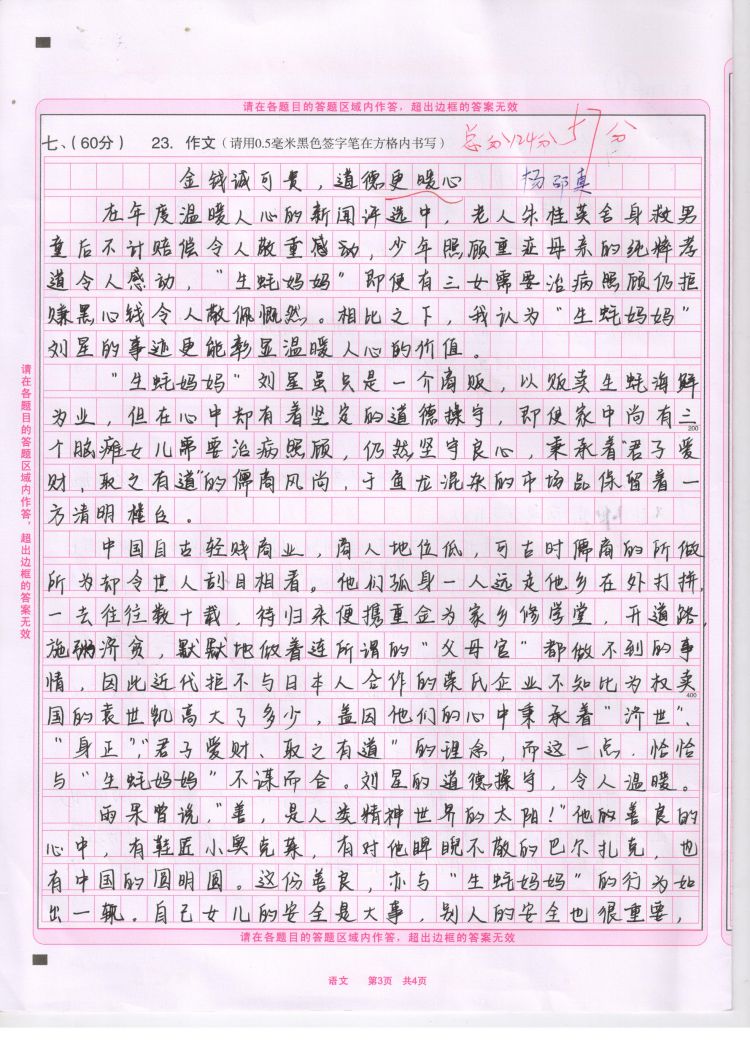 请在各题目的答题区域内作答，超出边框的答案无效
七、（60分） 23. 作文（请用0.5毫米黑色签字笔在方格内书写） 总分124分 57分
金钱诚可贵，道德更暖心 杨邵真
在年度温暖人心的新闻评选中，老人朱桂英舍身救男
童后不计赔偿令人敬重感动，少年照顾重症母亲的纯粹孝
道令人感动，“生蚝妈妈”即便有三女需要治病照顾仍拒
赚黑心钱令人敬佩慨然。相比之下，我认为“生蚝妈妈”
刘星的事迹更能彰显温暖人心的价值。
“生蚝妈妈”刘星虽只是一个商贩，以贩卖生蚝海鲜
为业，但在心中却有着坚定的道德操守，即使家中尚有三
200
个脑瘫女儿需要治病照顾，仍然坚守良心，秉承着“君子爱
财，取之有道”的儒商风尚，于鱼龙混杂的市场品保留着一
方清明楼台。
中国自古轻贱商业，商人地位低，可古时儒商的所做
所为却令世人刮目相看。他们孤身一人远走他乡在外打拼，
一去往往数十载，待归来便携重金为家乡修学堂，开道路，
施粥济贫，默默地做着连所谓的“父母官”都做不到的事
情，因此近代拒不与日本人合作的荣氏企业不知比为权卖
400
国的袁世凯高大了多少，盖因他们的心中秉承着“济世”、
“身正”，“君子爱财、取之有道”的理念，而这一点，恰恰
与“生蚝妈妈”不谋而合。刘星的道德操守，令人温暖。
雨果曾说，“善，是人类精神世界的太阳！”他的善良的
心中，有鞋匠小奥克莱，有对他睥睨不敬的巴尔扎克，也
有中国的圆明圆。这份善良，亦与“生蚝妈妈”的行为如
出一辄。自己女儿的安全是大事，别人的安全也很重要，
请在各题目的答题区域内作答，超出边框的答案无效
语文 第3页 共4页
请在各题目的答题区域内作答，超出边框的答案无效